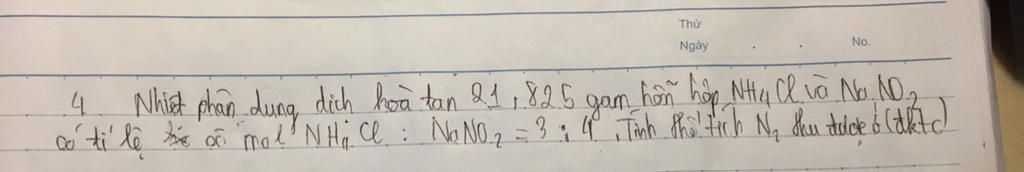 Thứ
Ngày . . No.
4 Nhiệt phân dung dịch hoà tan 21,825 gam hỗn hợp NH4Cl và NaNO2
có tỉ lệ số mol NH4Cl : NaNO2 = 3 : 4. Tính thể tích N2 thu được ở (đktc)